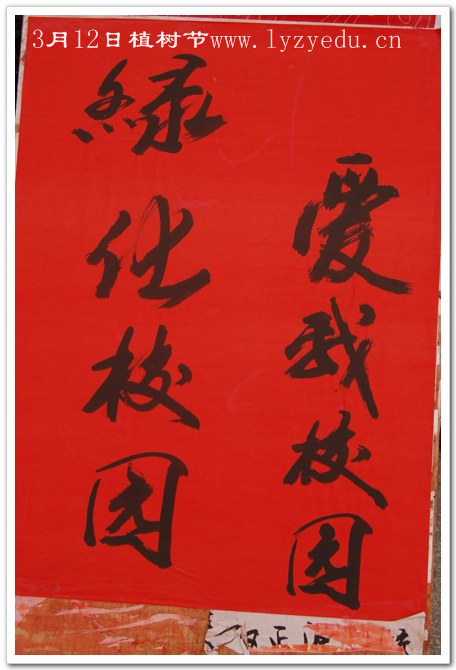 3月12日植树节www.lyzyedu.cn
爱我校园
綠化校园